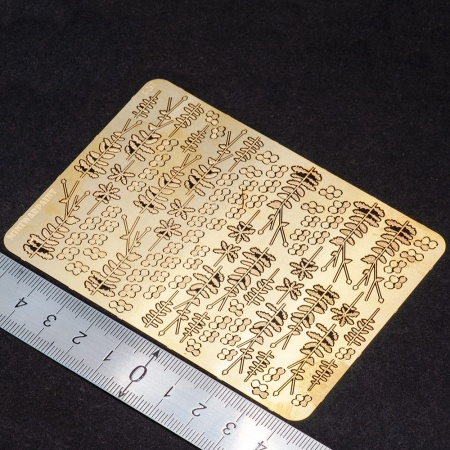 4 3 2 1 0 1 2 3